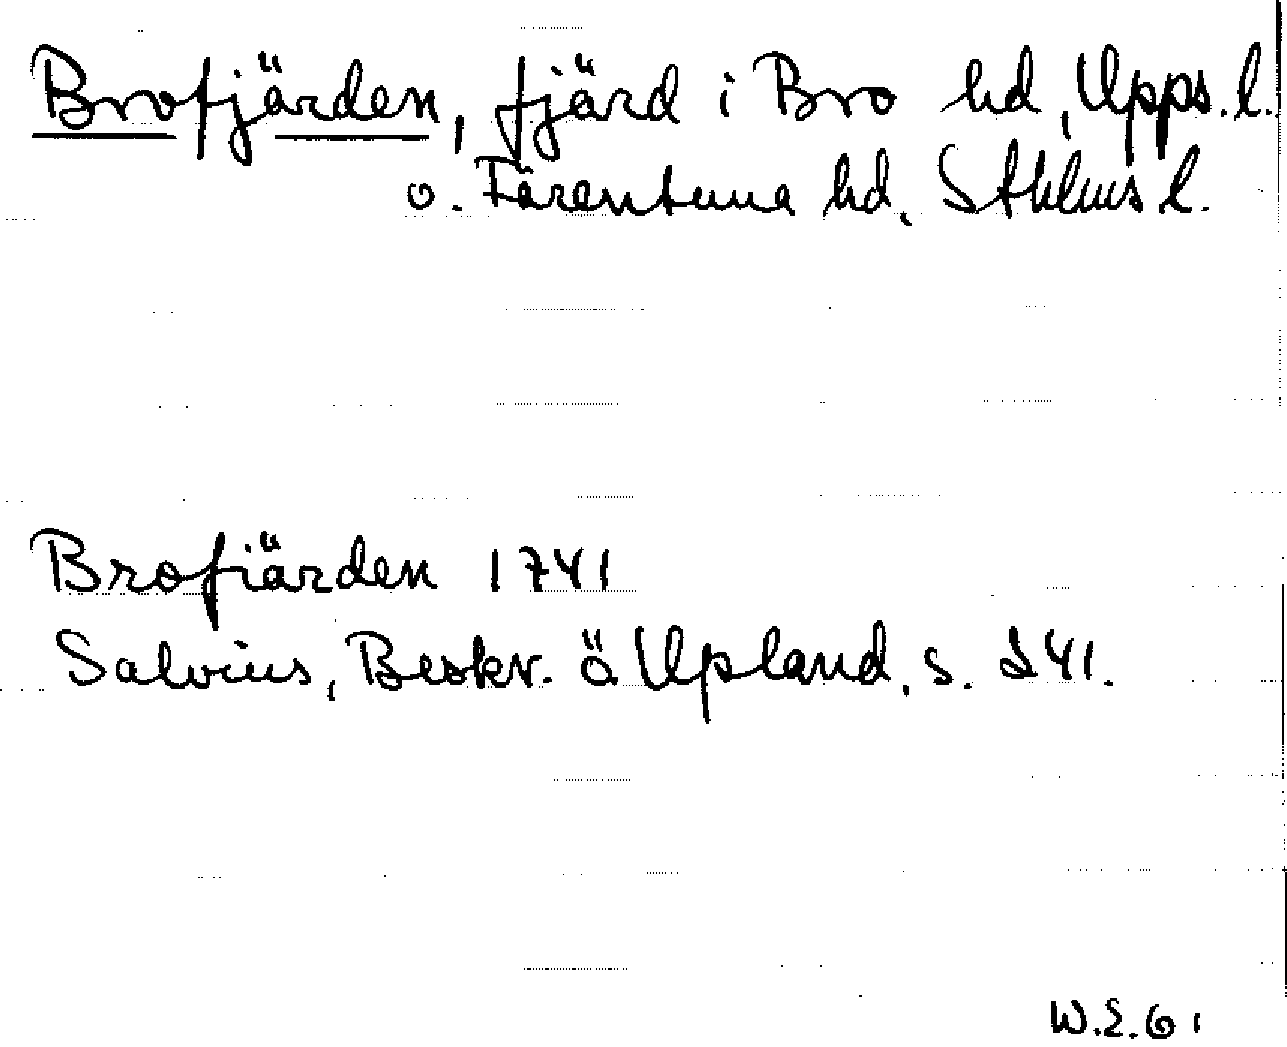 Brofjärden, fjärd i Bro hd, Upps. l.
o. Färentuna hd, Sthlms l.
Brofiärden 1741
Salvius, Beskr. ö Upland, s. 241.
W.E.61